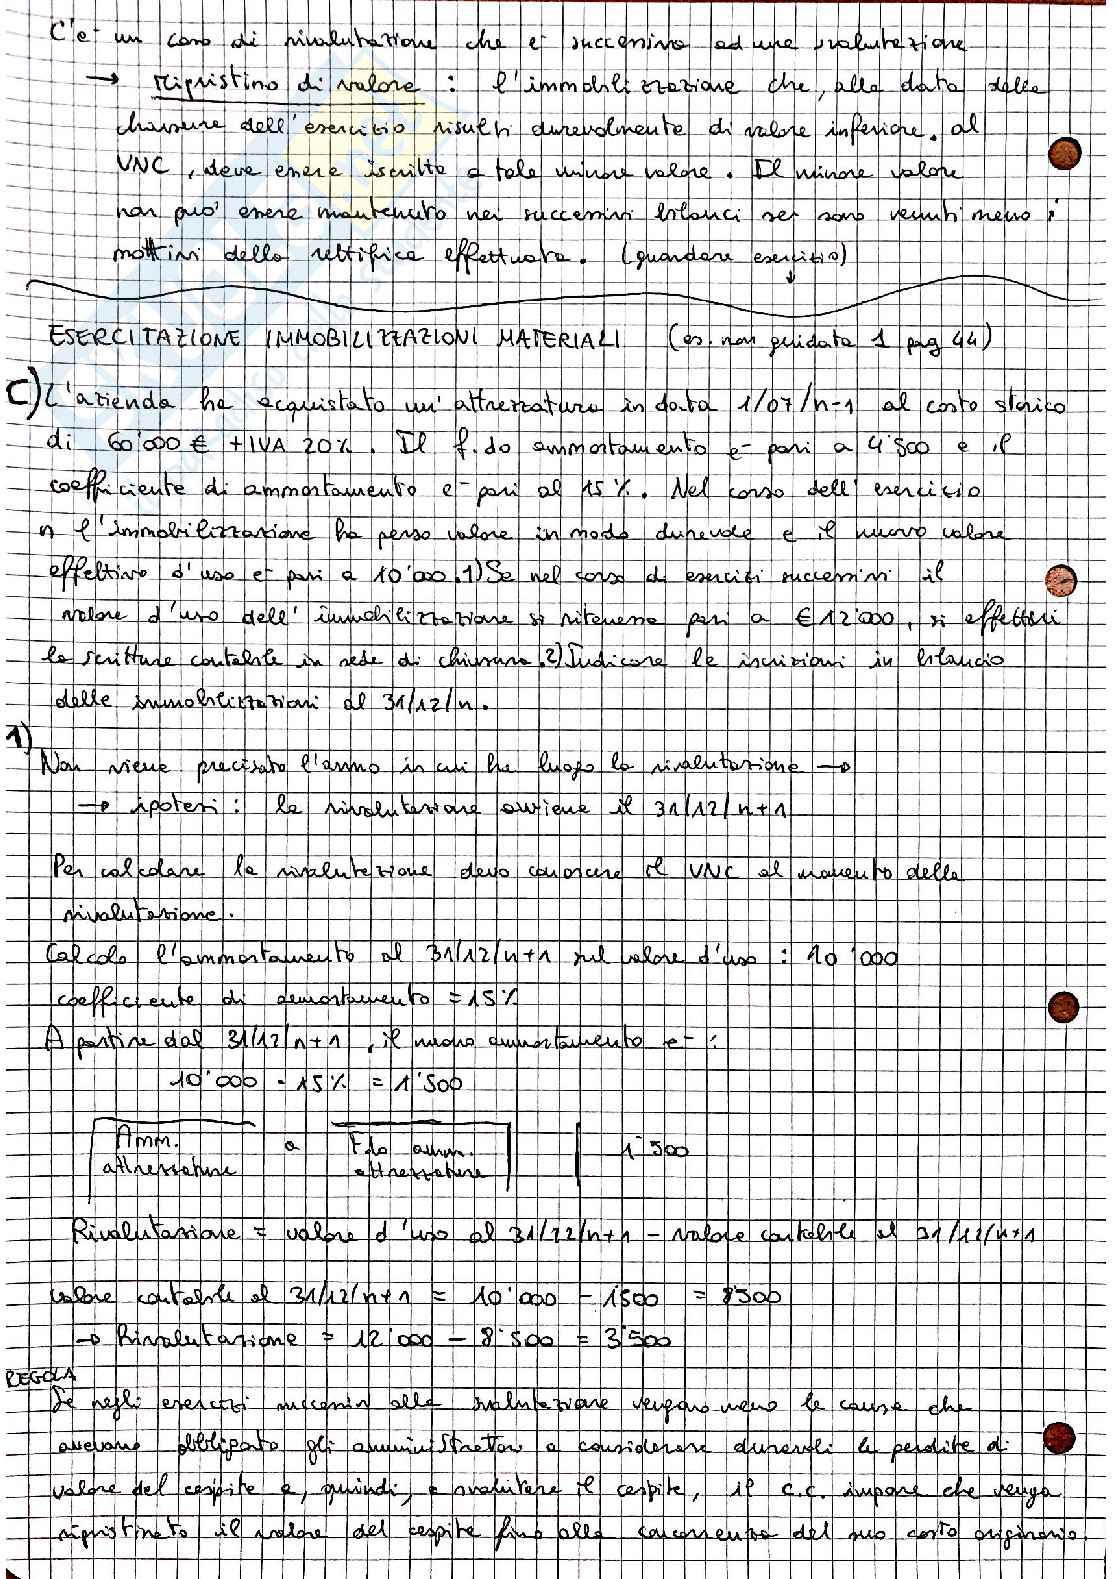 C'e' un caso di rivalutazione che e' successivo ad una svalutazione
→ Ripristino di valore : l'immobilizzazione che, alla data della
chiusura dell'esercizio risulti durevolmente di valore inferiore. al
VNC, deve essere iscritta a tale minore valore. Il minore valore
non puo' essere mantenuto nei successivi bilanci se sono venuti meno i
motivi della rettifica effettuata. (guardare esercizio)
↓
ESERCITAZIONE IMMOBILIZZAZIONI MATERIALI (es. non guidata 1 pag 44)
C) L'azienda ha acquistato un'attrezzatura in data 1/07/n-1 al costo storico
di 60'000 € + IVA 20%. Il f.do ammortamento e' pari a 4'500 e il
coefficiente di ammortamento e' pari al 15%. Nel corso dell'esercizio
n l'immobilizzazione ha perso valore in modo durevole e il nuovo valore
effettivo d'uso e' pari a 10'000. 1) Se nel corso di esercizi successivi il
valore d'uso dell'immobilizzazione si ritenesse pari a € 12'000, si effettui
la scritture contabile in sede di chiusura. 2) Indicare le iscrizioni in bilancio
delle immobilizzazioni al 31/12/n.
1)
Non viene precisato l'anno in cui ha luogo la rivalutazione →
→ ipotesi: la rivalutazione avviene il 31/12/n+1
Per calcolare la rivalutazione devo conoscere il VNC al momento della
rivalutazione.
Calcolo l'ammortamento al 31/12/n+1 sul valore d'uso : 10'000
coefficiente di ammortamento = 15%
A partire dal 31/12/n+1, il nuovo ammortamento e' :
10'000 · 15% = 1'500
Amm. attrezzature a F.do amm. attrezzature 1'500
Rivalutazione = valore d'uso al 31/12/n+1 - valore contabile al 31/12/n+1
valore contabile al 31/12/n+1 = 10'000 - 1500 = 8'500
→ Rivalutazione = 12'000 - 8'500 = 3'500
REGOLA
Se negli esercizi successivi alla svalutazione vengono meno le cause che
avevano obbligato gli amministratori a considerare durevoli le perdite di
valore del cespite e, quindi, a svalutare il cespite, il c.c. impone che venga
ripristinato il valore del cespite fino alla concorrenza del suo costo originario.